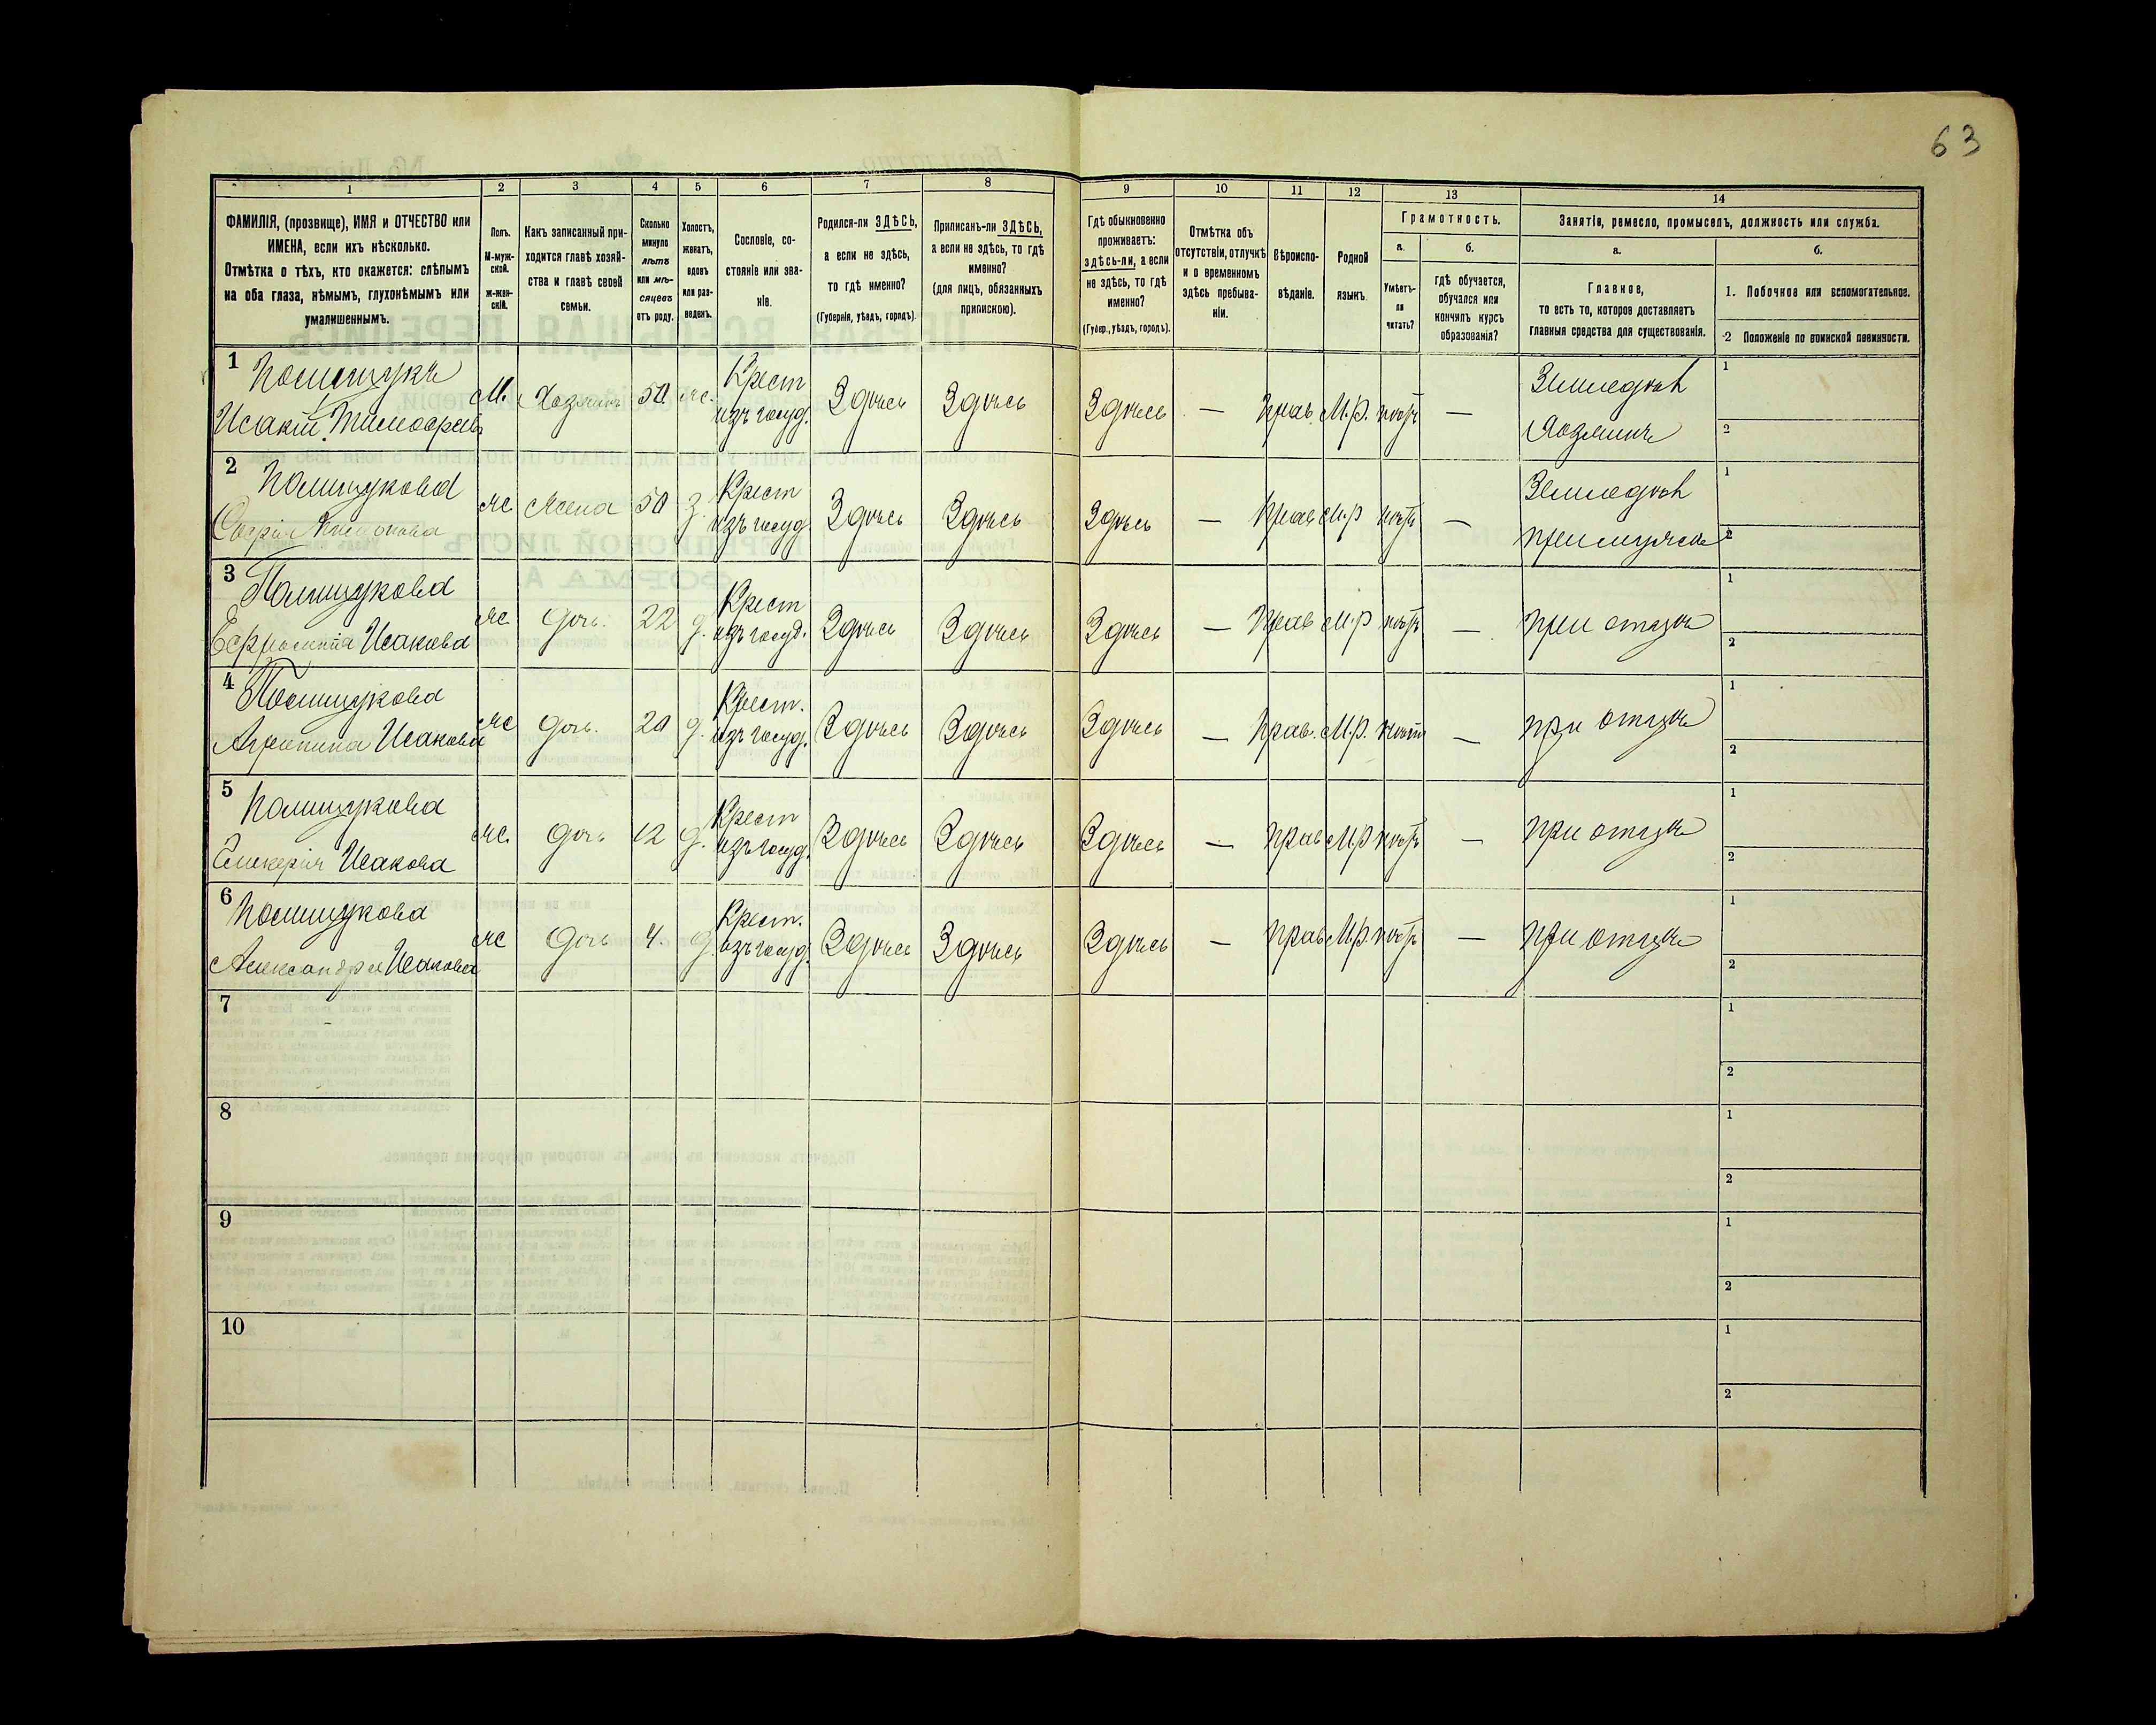 63
1 2 3 4 5 6 7 8 9 10 11 12 13 14
ФАМИЛІЯ, (прозвище), ИМЯ и ОТЧЕСТВО или
ИМЕНА, если ихъ нѣсколько.
Отмѣтка о тѣхъ, кто окажется: слѣпымъ
на оба глаза, нѣмымъ, глухонѣмымъ или
умалишеннымъ.
Полъ.
М-муж-
ской.
Ж-жен-
скій.
Какъ записанный при-
ходится главѣ хозяй-
ства и главѣ своей
семьи.
Сколько
минуло
лѣтъ
или мѣ-
сяцевъ
отъ роду.
Холостъ,
женатъ,
вдовъ
или раз-
веденъ.
Сословіе, со-
стояніе или зва-
ніе.
Родился-ли ЗДѢСЬ,
а если не здѣсь,
то гдѣ именно?
(Губернія, уѣздъ, городъ).
Приписанъ-ли ЗДѢСЬ,
а если не здѣсь, то гдѣ
именно?
(для лицъ, обязанныхъ
припискою).
Гдѣ обыкновенно
проживаетъ:
здѣсь-ли, а если
не здѣсь, то гдѣ
именно?
(Губер., уѣздъ, городъ).
Отмѣтка объ
отсутствіи, отлучкѣ
и о временномъ
здѣсь пребыва-
ніи.
Вѣроиспо-
вѣданіе.
Родной
языкъ.
Грамотность.
а.
Умѣетъ-
ли
читать?
б.
гдѣ обучается,
обучался или
кончилъ курсъ
образованія?
Занятіе, ремесло, промыселъ, должность или служба.
а.
Главное,
то есть то, которое доставляетъ
главныя средства для существованія.
б.
1. Побочное или вспомогательное.
2 Положеніе по воинской повинности.
1 Полищукъ
Исакій Тимофеевъ
М. Хозяинъ 50 ж. Крест
изъ госуд. Здѣсь Здѣсь Здѣсь — Прав. М.р. нѣтъ — Земледѣл
Хозяинъ
1
2
2 Полищукова
Софія
ж. Жена 50 з. Крест
изъ госуд Здѣсь Здѣсь Здѣсь — Прав М.р нѣтъ — Земледѣл
при мужѣ
1
2
3 Полищукова
Ефросинія Исакова
ж. дочь. 22 д. Крест
изъ госуд. Здѣсь Здѣсь Здѣсь — Прав М.р нѣтъ — при отцѣ
1
2
4 Полищукова
Агрипина Исакова
ж дочь. 20 д. Крест.
изъ госуд. Здѣсь Здѣсь Здѣсь — Прав. М.р. нѣтъ — при отцѣ
1
2
5 Полищукова
Гликерія Исакова
ж. дочь 12 д. Крест
изъ госуд. Здѣсь Здѣсь Здѣсь — Прав М.р нѣтъ — при отцѣ
1
2
6 Полищукова
Александра Исакова
ж дочь 4. д. Крест.
изъ госуд. Здѣсь Здѣсь Здѣсь — Прав М.р. нѣтъ — при отцѣ
1
2
7
1
2
8
1
2
9
1
2
10
1
2